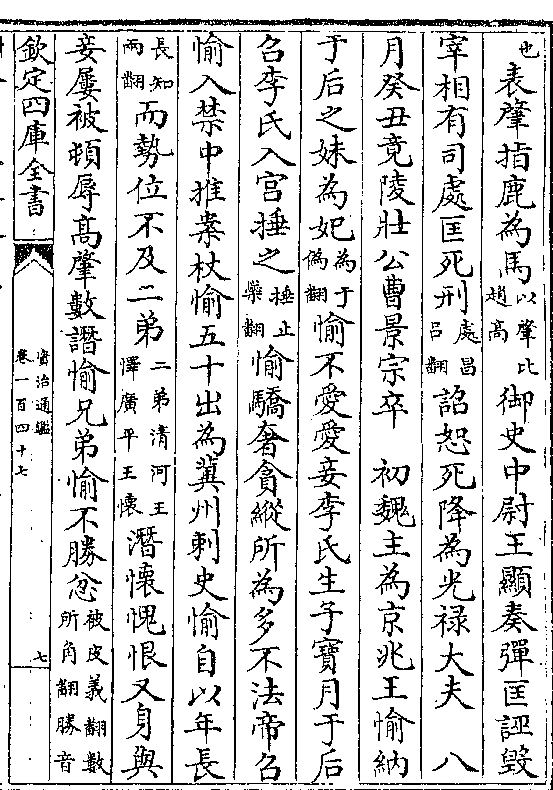 也表肇指鹿為馬以肇比趙高御史中尉王顯奏彈匡誣毀
宰相有司處匡死刑處昌呂翻詔恕死降為光祿大夫　八
月癸丑竟陵壯公曹景宗卒　初魏主為京兆王愉納
于后之妹為妃為于偽翻愉不愛愛妾李氏生子寶月于后
召李氏入宫捶之捶止橤翻愉驕奢貪縱所為多不法帝召
愉入禁中推案杖愉五十出為冀州刺史愉自以年長
長知兩翻而勢位不及二弟二弟清河王懌廣平王懷潛懷愧恨又身與
妾屢被頓辱高肇數譖愉兄弟愉不勝忿被皮義翻數所角翻勝音
欽定四庫全書
資治通鑑
卷一百四十七
七